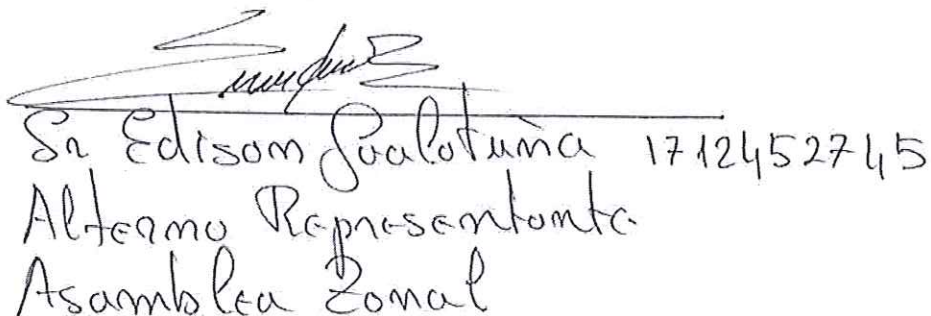 Sr Edison Gualotuña 1712452745
Alterno Representante
Asamblea Zonal